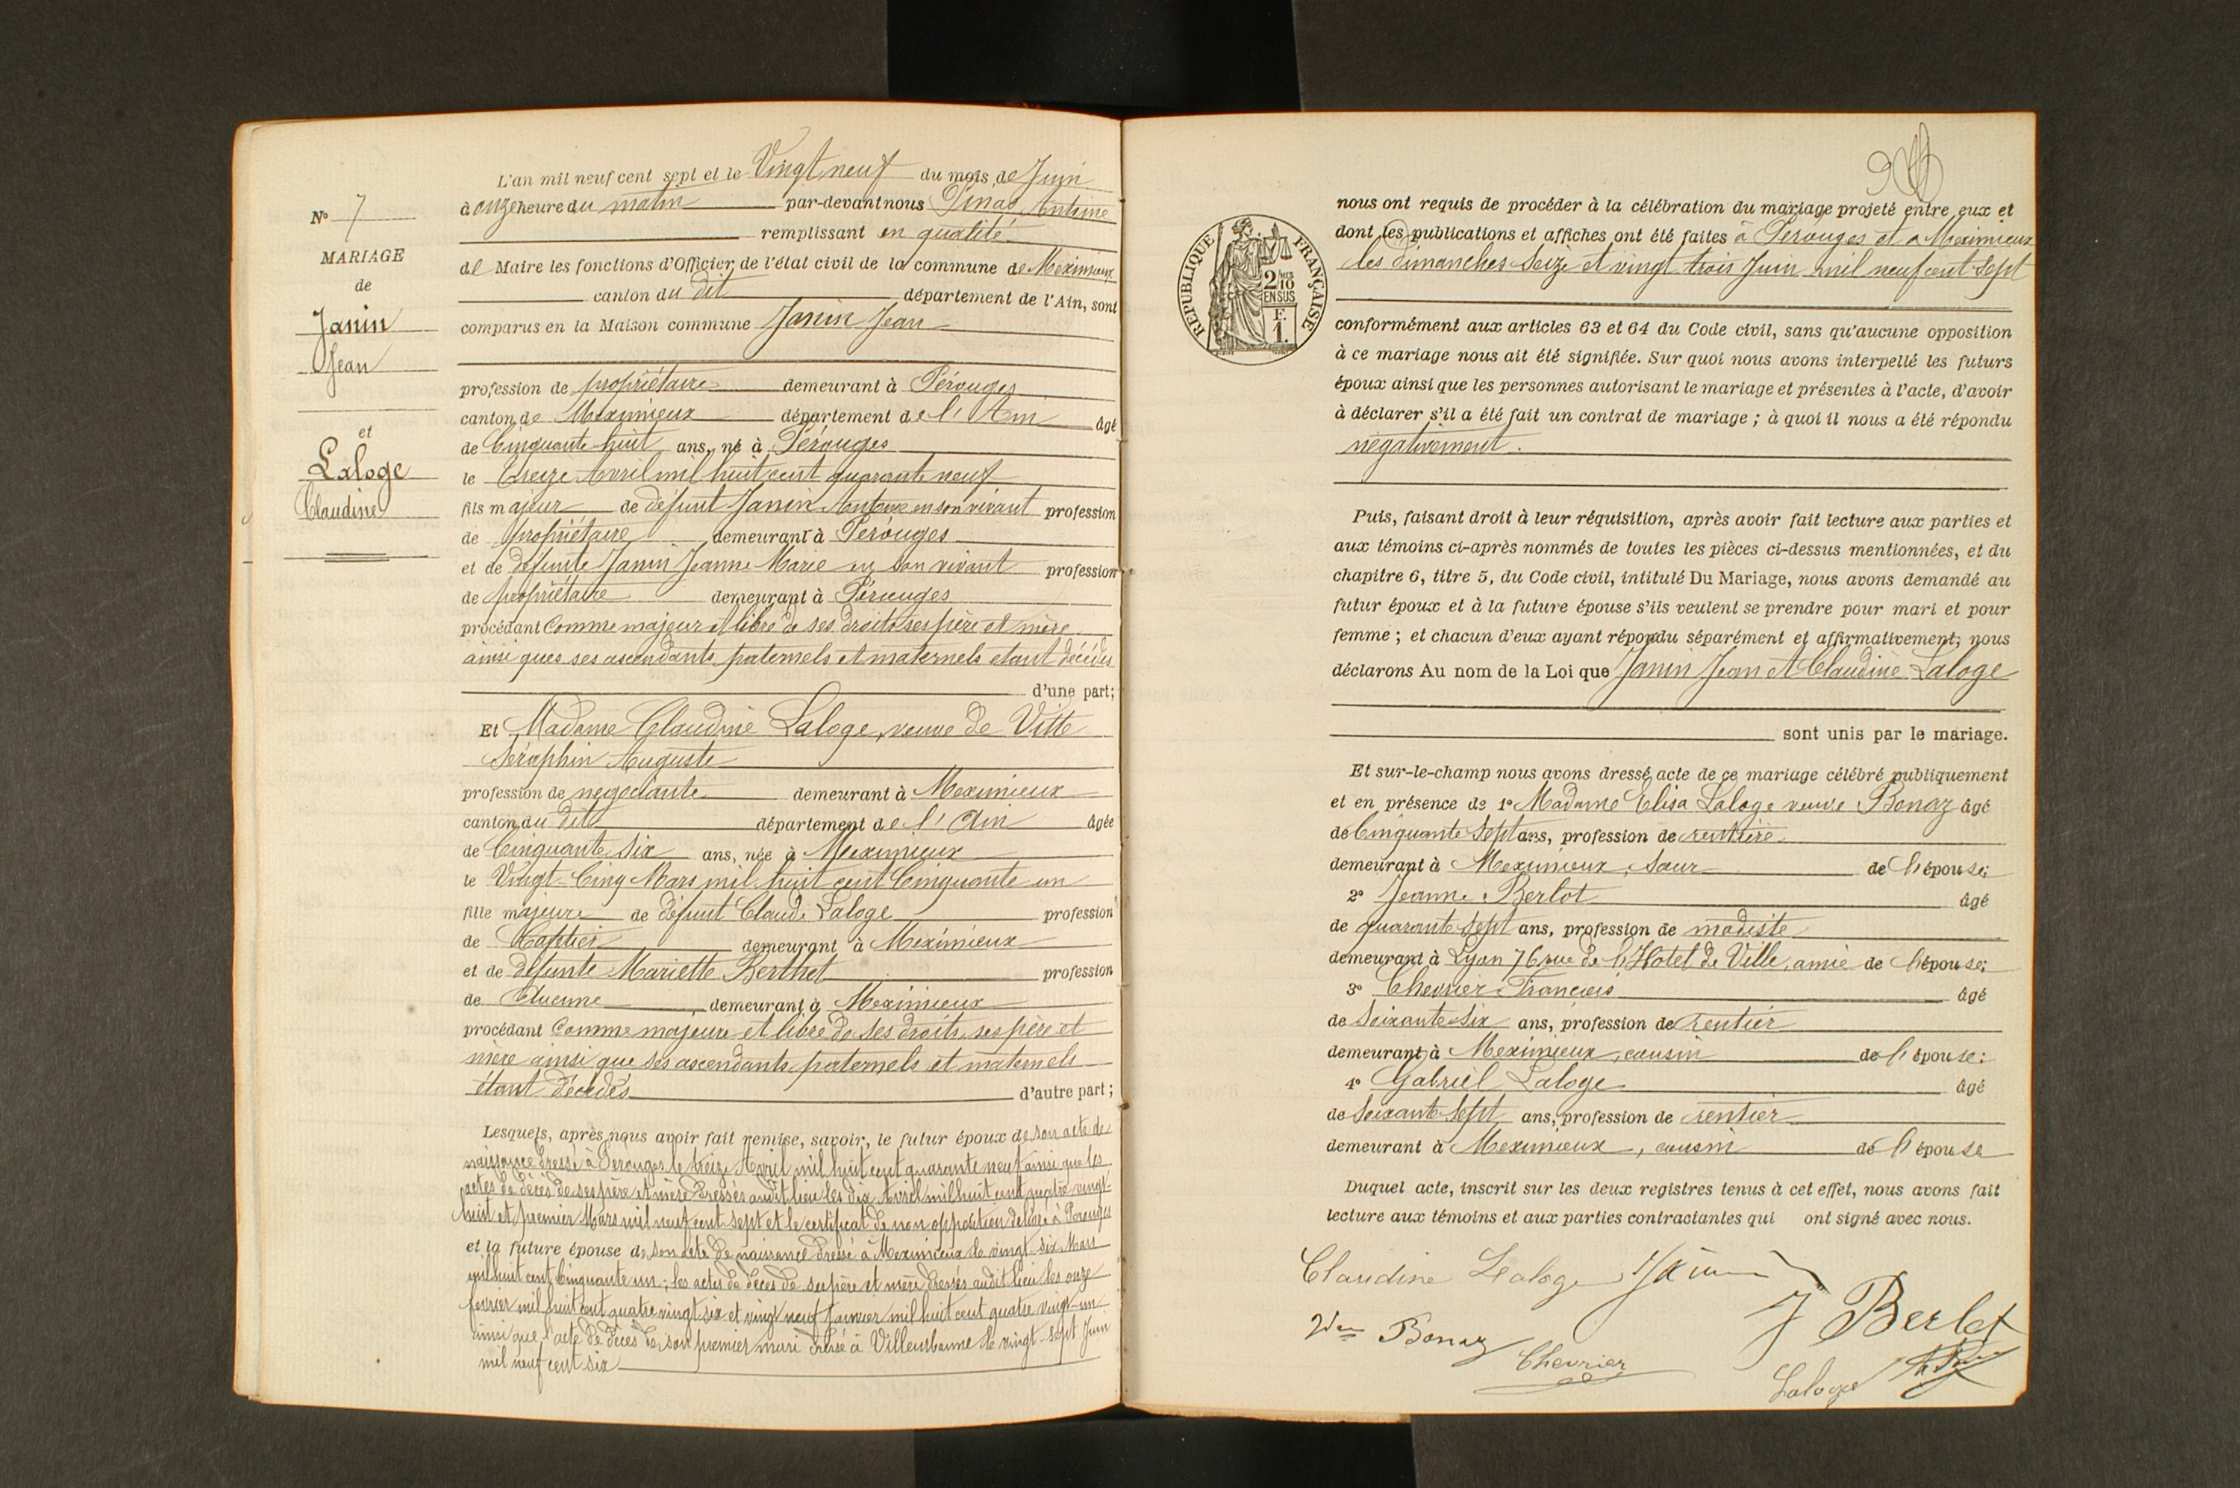 N° 7
MARIAGE
de
Janin
Jean
et
Laloge
Claudine
L'an mil neuf cent sept et le Vingt neuf du mois de Juin
à onze heure du matin par-devant nous Pinas, Antoine
remplissant en qualité
de Maire les fonctions d'Officier de l'état civil de la commune de Meximieux
canton du dit département de l'Ain, sont
comparus en la Maison commune Janin Jean
profession de propriétaire demeurant à Pérouges
canton de Meximieux département de l'Ain âgé
de Cinquante huit ans, né à Pérouges
le treize Avril mil huit cent quarante neuf
fils majeur de défunt Janin Antoine en son vivant profession
de propriétaire demeurant à Pérouges
et de défunte Janin Jeanne Marie en son vivant profession
de propriétaire demeurant à Pérouges
procédant comme majeur et libre de ses droits ses père et mère
ainsi ques ses ascendants paternels et maternels étant décédés
d'une part;
Et Madame Claudine Laloge, veuve de Vitte
Séraphin Auguste
profession de négociante demeurant à Meximieux
canton du dit département de l'Ain âgée
de Cinquante six ans, née à Meximieux
le Vingt-Cinq Mars mil huit cent Cinquante un
fille majeure de défunt Claude Laloge profession
de demeurant à Meximieux
et de défunte Mariette Berthet profession
de demeurant à Meximieux
procédant comme majeure et libre de ses droits, ses père et
mère ainsi que ses ascendants paternels et maternels
étant décédés d'autre part;
Lesquels, après nous avoir fait remise, savoir, le futur époux de son acte de
naissance dressé à Perouges le treize Avril mil huit cent quarante neuf ainsi que les
actes de décès de ses père et mère dressés audit lieu les dix Avril mil huit cent quatre vingt
huit et premier Mars mil neuf cent sept et le certificat de non opposition délivré à Perouges
et la future épouse de son acte de naissance dressé à Meximieux le vingt-six Mars
mil huit cent Cinquante un; les actes de décès de ses père et mère dressés audit lieu les onze
février mil huit cent quatre vingt six et vingt neuf Janvier mil huit cent quatre vingt-un
ainsi que l'acte de décès de son premier mari dressé à Villeurbanne le vingt-sept Juin
mil neuf cent six
RÉPUBLIQUE FRANÇAISE
2/10 EN SUS
F. 1.
nous ont requis de procéder à la célébration du mariage projeté entre eux et
dont les publications et affiches ont été faites à Pérouges et a Meximieux
les dimanches seize et vingt trois Juin mil neuf cent sept
conformément aux articles 63 et 64 du Code civil, sans qu'aucune opposition
à ce mariage nous ait été signifiée. Sur quoi nous avons interpellé les futurs
époux ainsi que les personnes autorisant le mariage et présentes à l'acte, d'avoir
à déclarer s'il a été fait un contrat de mariage; à quoi il nous a été répondu
négativement.
Puis, faisant droit à leur réquisition, après avoir fait lecture aux parties et
aux témoins ci-après nommés de toutes les pièces ci-dessus mentionnées, et du
chapitre 6, titre 5, du Code civil, intitulé Du Mariage, nous avons demandé au
futur époux et à la future épouse s'ils veulent se prendre pour mari et pour
femme; et chacun d'eux ayant répondu séparément et affirmativement, nous
déclarons Au nom de la Loi que Janin Jean et Claudine Laloge
sont unis par le mariage.
Et sur-le-champ nous avons dressé acte de ce mariage célébré publiquement
et en présence de 1° Madame Elisa Laloge veuve Bonaz âgé
de Cinquante sept ans, profession de rentière
demeurant à Meximieux, soeur de l'épouse;
2° Jeanne Berlot âgé
de quarante sept ans, profession de modiste
demeurant à Lyon 76 rue de l'Hotel de Ville, amie de l'épouse;
3° Chevrier François âgé
de soixante six ans, profession de rentier
demeurant à Meximieux, cousin de l'épouse;
4° Gabriel Laloge âgé
de soixante sept ans, profession de rentier
demeurant à Meximieux, cousin de l'épouse
Duquel acte, inscrit sur les deux registres tenus à cet effet, nous avons fait
lecture aux témoins et aux parties contractantes qui ont signé avec nous.
Claudine Laloge Janin
J Berlot
Vve Bonaz
Chevrier
Laloge